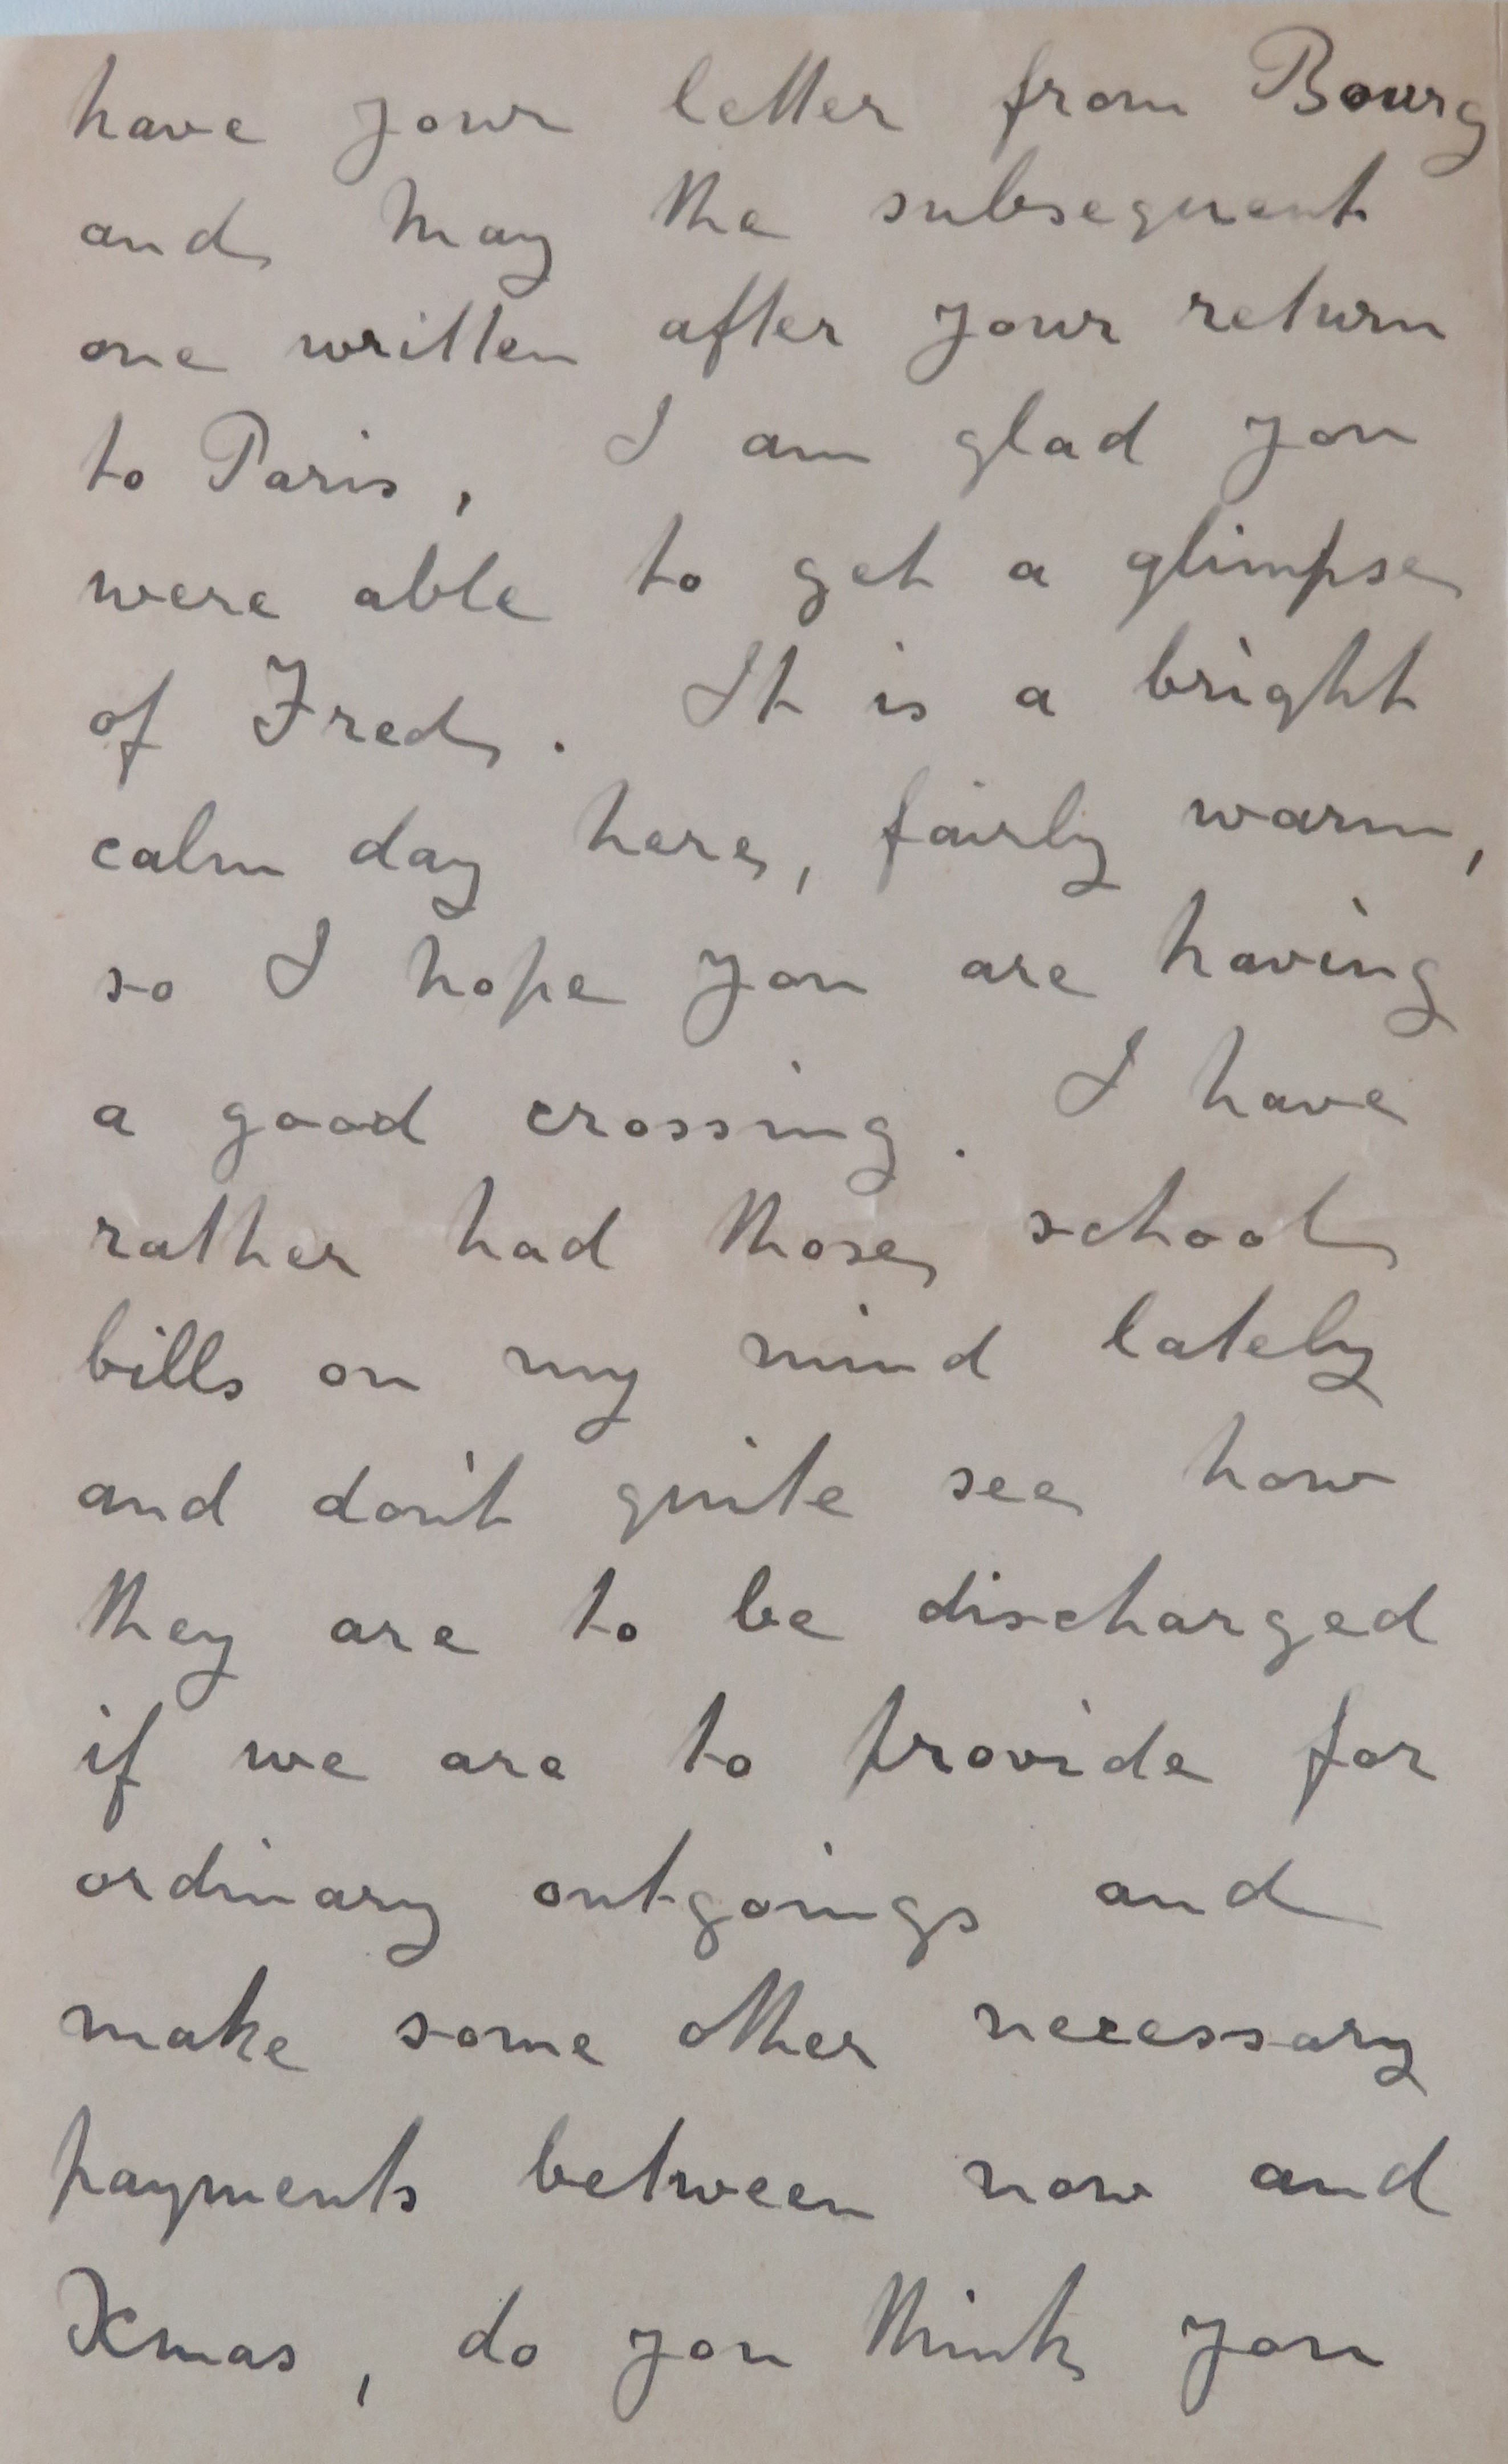 have your letter from Bourg
and May the subsequent
one written after your return
to Paris, I am glad you
were able to get a glimpse
of Fred. It is a bright
calm day here, fairly warm,
so I hope you are having
a good crossing. I have
rather had those school
bills on my mind lately
and don't quite see how
they are to be discharged
if we are to provide for
ordinary outgoings and
make some other necessary
payments between now and
Xmas, do you think you